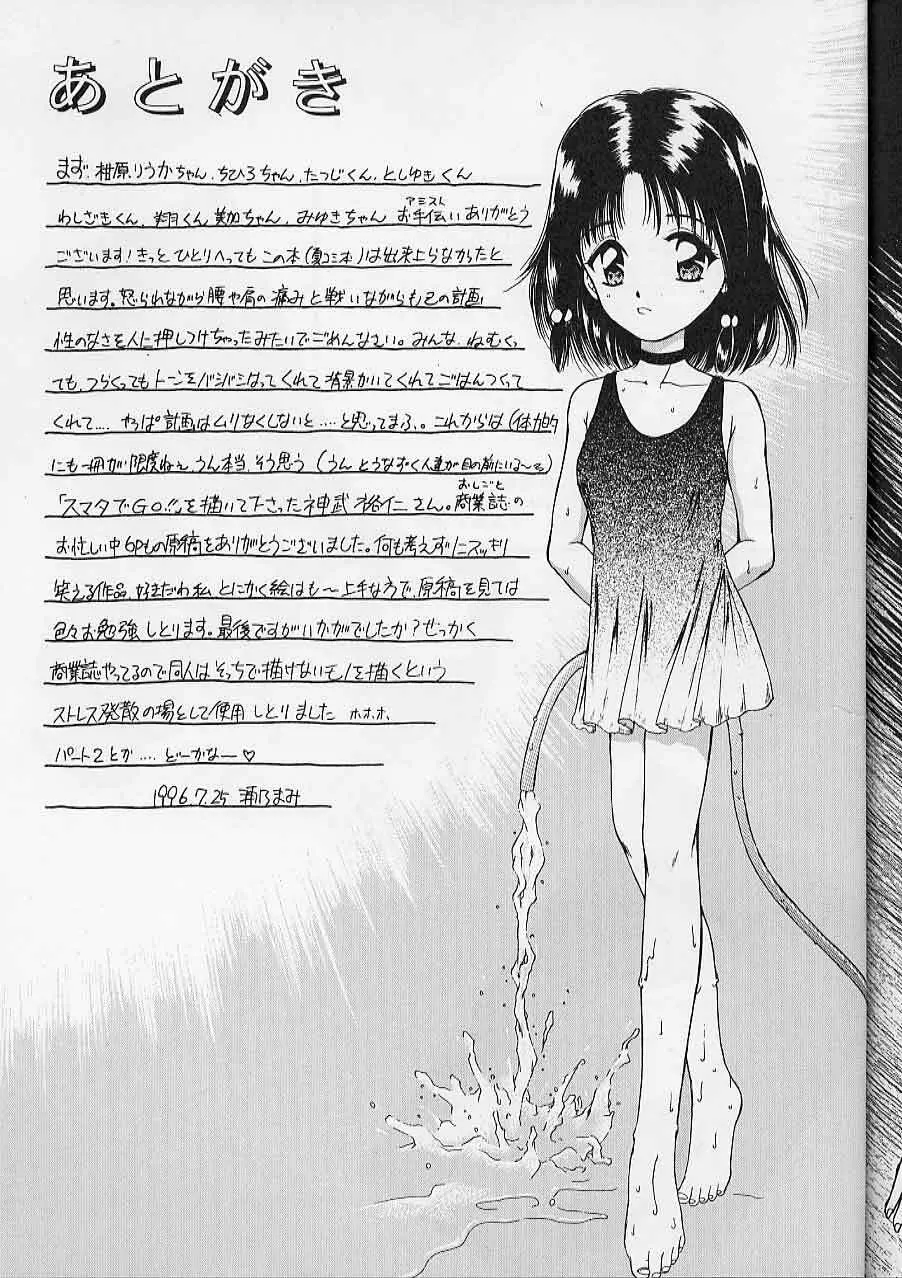 あとがき
まず、柑原りうかちゃん、ちひろちゃん、たつじくん、としゆきくん
わしざきくん、翔くん、美加ちゃん、みゆきちゃん お手伝いありがとう
アミスト
ございます!きっと ひとりへっても この本(夏コミ本)は出来上らなかったと
思います。怒られながら腰や肩の痛みと戦いながらも己の計画
性のなさを人に押しつけちゃったみたいでごめんなさい。みんな、ねむくっ
ても、つらくってもトーンをバシバシはってくれて背景かいてくれてごはんつくって
くれて.... やっぱ計画はムリなくしないと....と思ってまふ。これからは(体力的
にも一冊が限度ねェ、うん本当、そう思う(うんとうなずく人達が目の前にいる〜)
「スマタでGO!!」を描いて下さった神武裕仁さん。商業誌の
おしごと
お忙しい中6Pもの原稿をありがとうございました。何も考えずにスッキリ
笑える作品、好きだわ私、とにかく絵はも〜上手なうで、原稿を見ては
色々お勉強しとります。最後ですがいかがでしたか?せっかく
商業誌やってるので同人はそっちで描けないモノを描くという
ストレス発散の場として使用しとりました ホホホ、
パート2とか.... どーかなー♡
1996.7.25 まみ